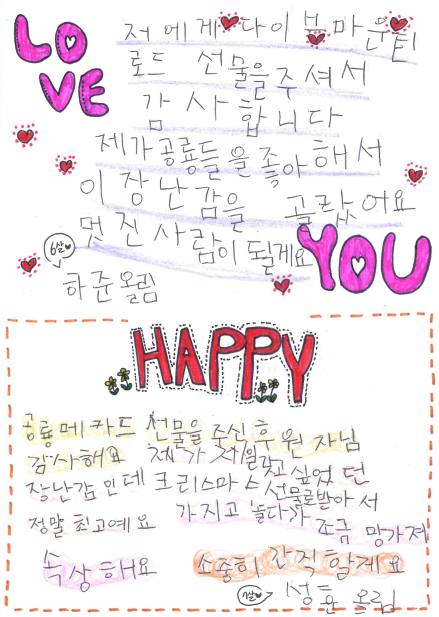 LOVE
저에게 다이노마운틴
로드 선물을주셔서
감사합니다
제가공룡들을좋아해서
이 장난감을 골랐어요
멋진사람이 될게요
YOU
6살
하준올림
HAPPY
공룡메카드 선물을 주신후원자님
감사해요 제가 제일갖고싶었던
장난감인데 크리스마스선물로받아서
정말최고예요 가지고 놀다가 조금 망가져
속상해요 소중히 간직할게요
7살
성훈 올림